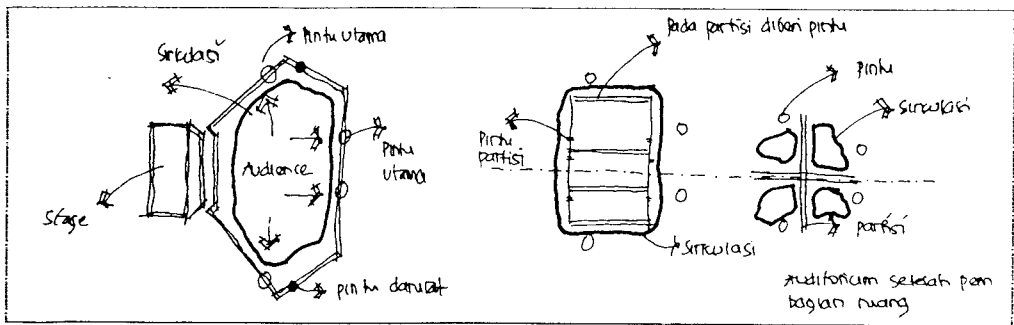 Pintu utama
Sirkulasi
Audience
Pintu
utama
Stage
pintu darurat
Pada partisi diberi pintu
Pintu
partisi
Sirkulasi
Pintu
Sirkulasi
partisi
Auditorium setelah pem
bagian ruang